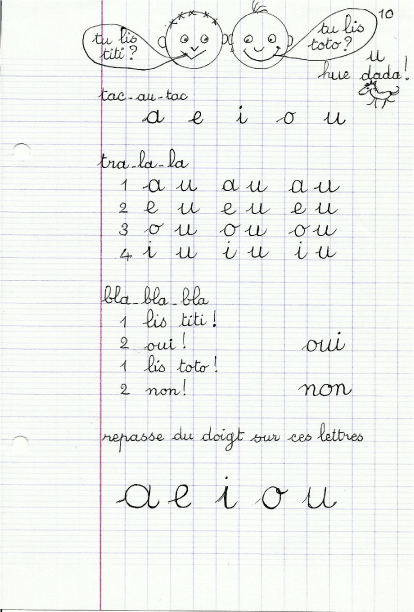 10
tu lis titi ?
tu lis toto ?
u
hue dada !
tac-au-tac
a e i o u
tra-la-la
1 a u a u a u
2 e u e u e u
3 o u o u o u
4 i u i u i u
bla-bla-bla
1 lis titi !
2 oui ! oui
1 lis toto !
2 non ! non
repasse du doigt sur ces lettres
a e i o u